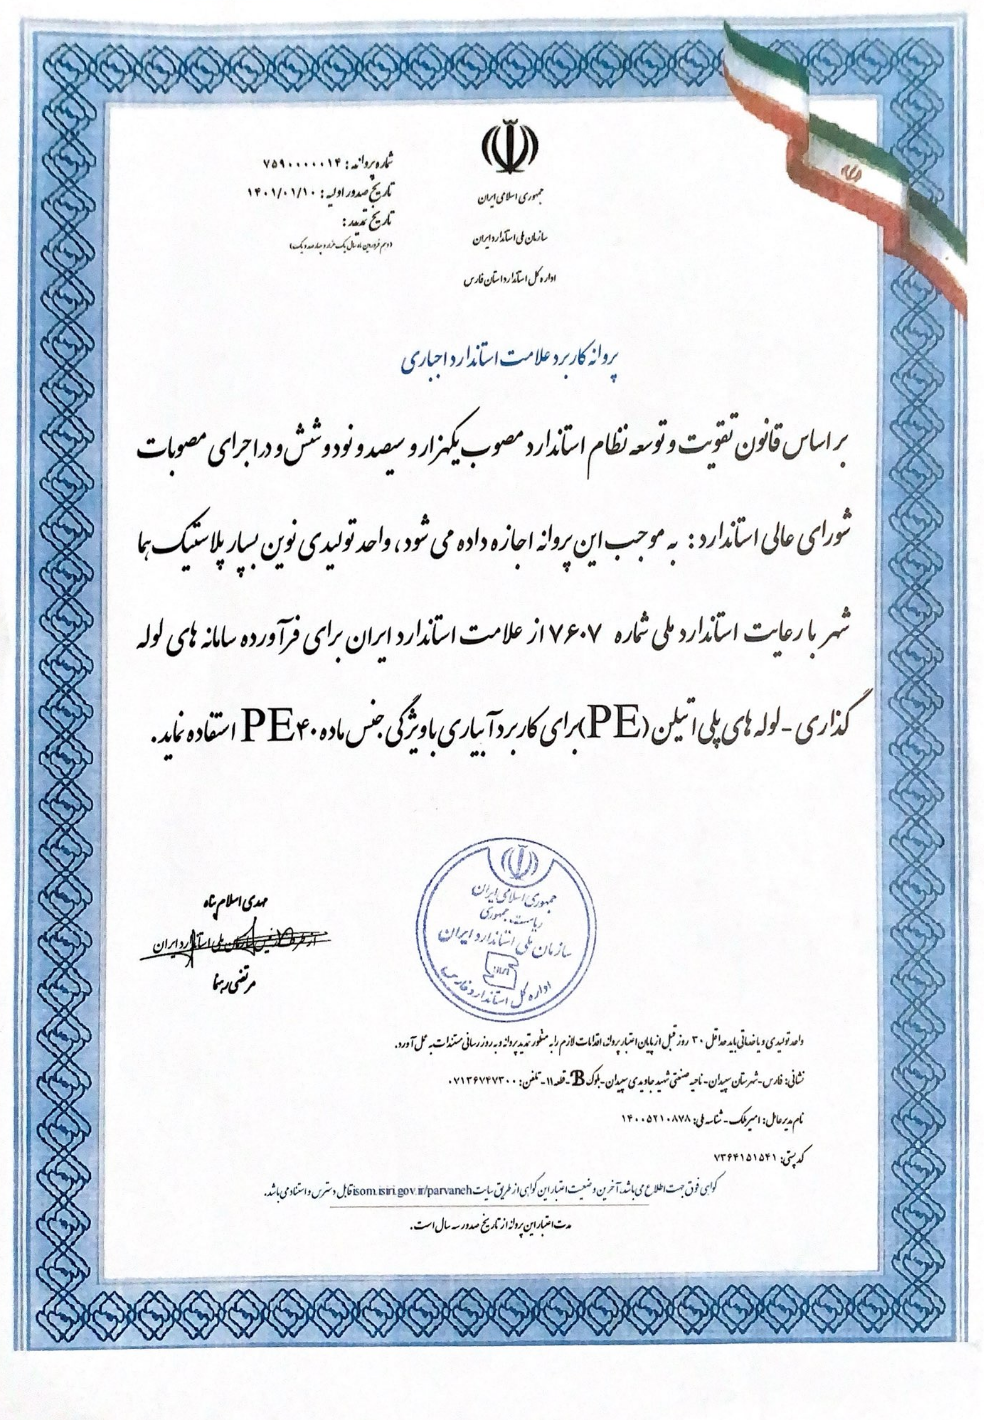 جمهوری اسلامی ایران
سازمان ملی استاندارد ایران
اداره کل استاندارد استان فارس
شماره پروانه : ۷۵۹۰۰۰۰۰۱۴
تاریخ صدور اولیه : ۱۴۰۱/۰۱/۱۰
تاریخ تمدید :
(دهم فروردین ماه سال یک هزار و چهارصد و یک)
پروانه کاربرد علامت استاندارد اجباری
بر اساس قانون تقویت و توسعه نظام استاندارد مصوب یکهزار و سیصد و نود و شش و در اجرای مصوبات
شورای عالی استاندارد : به موجب این پروانه اجازه داده می شود، واحد تولیدی نوین بسپار پلاستیک هما
شهر با رعایت استاندارد ملی شماره ۷۶۰۷ از علامت استاندارد ایران برای فرآورده سامانه های لوله
گذاری - لوله های پلی اتیلن (PE)برای کاربرد آبیاری با ویژگی جنس ماده PE۴۰ استفاده نماید.
مهدی اسلام پناه
از طرف رئیس سازمان ملی استاندارد ایران
مرتضی رهنما
جمهوری اسلامی ایران
ریاست جمهوری
سازمان ملی استاندارد ایران
اداره کل استاندارد فارس
واحد تولیدی و یا خدماتی باید حداقل ۳۰ روز قبل از پایان اعتبار پروانه اقدامات لازم را به منظور تمدید پروانه و به روز رسانی مستندات به عمل آورد.
نشانی: فارس-شهرستان سپیدان- ناحیه صنعتی شهید جاویدی سپیدان-بلوک B-قطعه ۱۱- تلفن: ۰۷۱۳۶۷۴۷۳۰۰
نام مدیرعامل: امیر ملک - شناسه ملی: ۱۴۰۰۵۲۱۰۸۷۸
کد پستی: ۷۳۶۴۱۵۱۵۴۱
گواهی فوق جهت اطلاع می باشد، آخرین وضعیت اعتبار این گواهی از طریق سایت isom.isiri.gov.ir/parvanehقابل دسترس و استناد می باشد.
مدت اعتبار این پروانه از تاریخ صدور سه سال است.